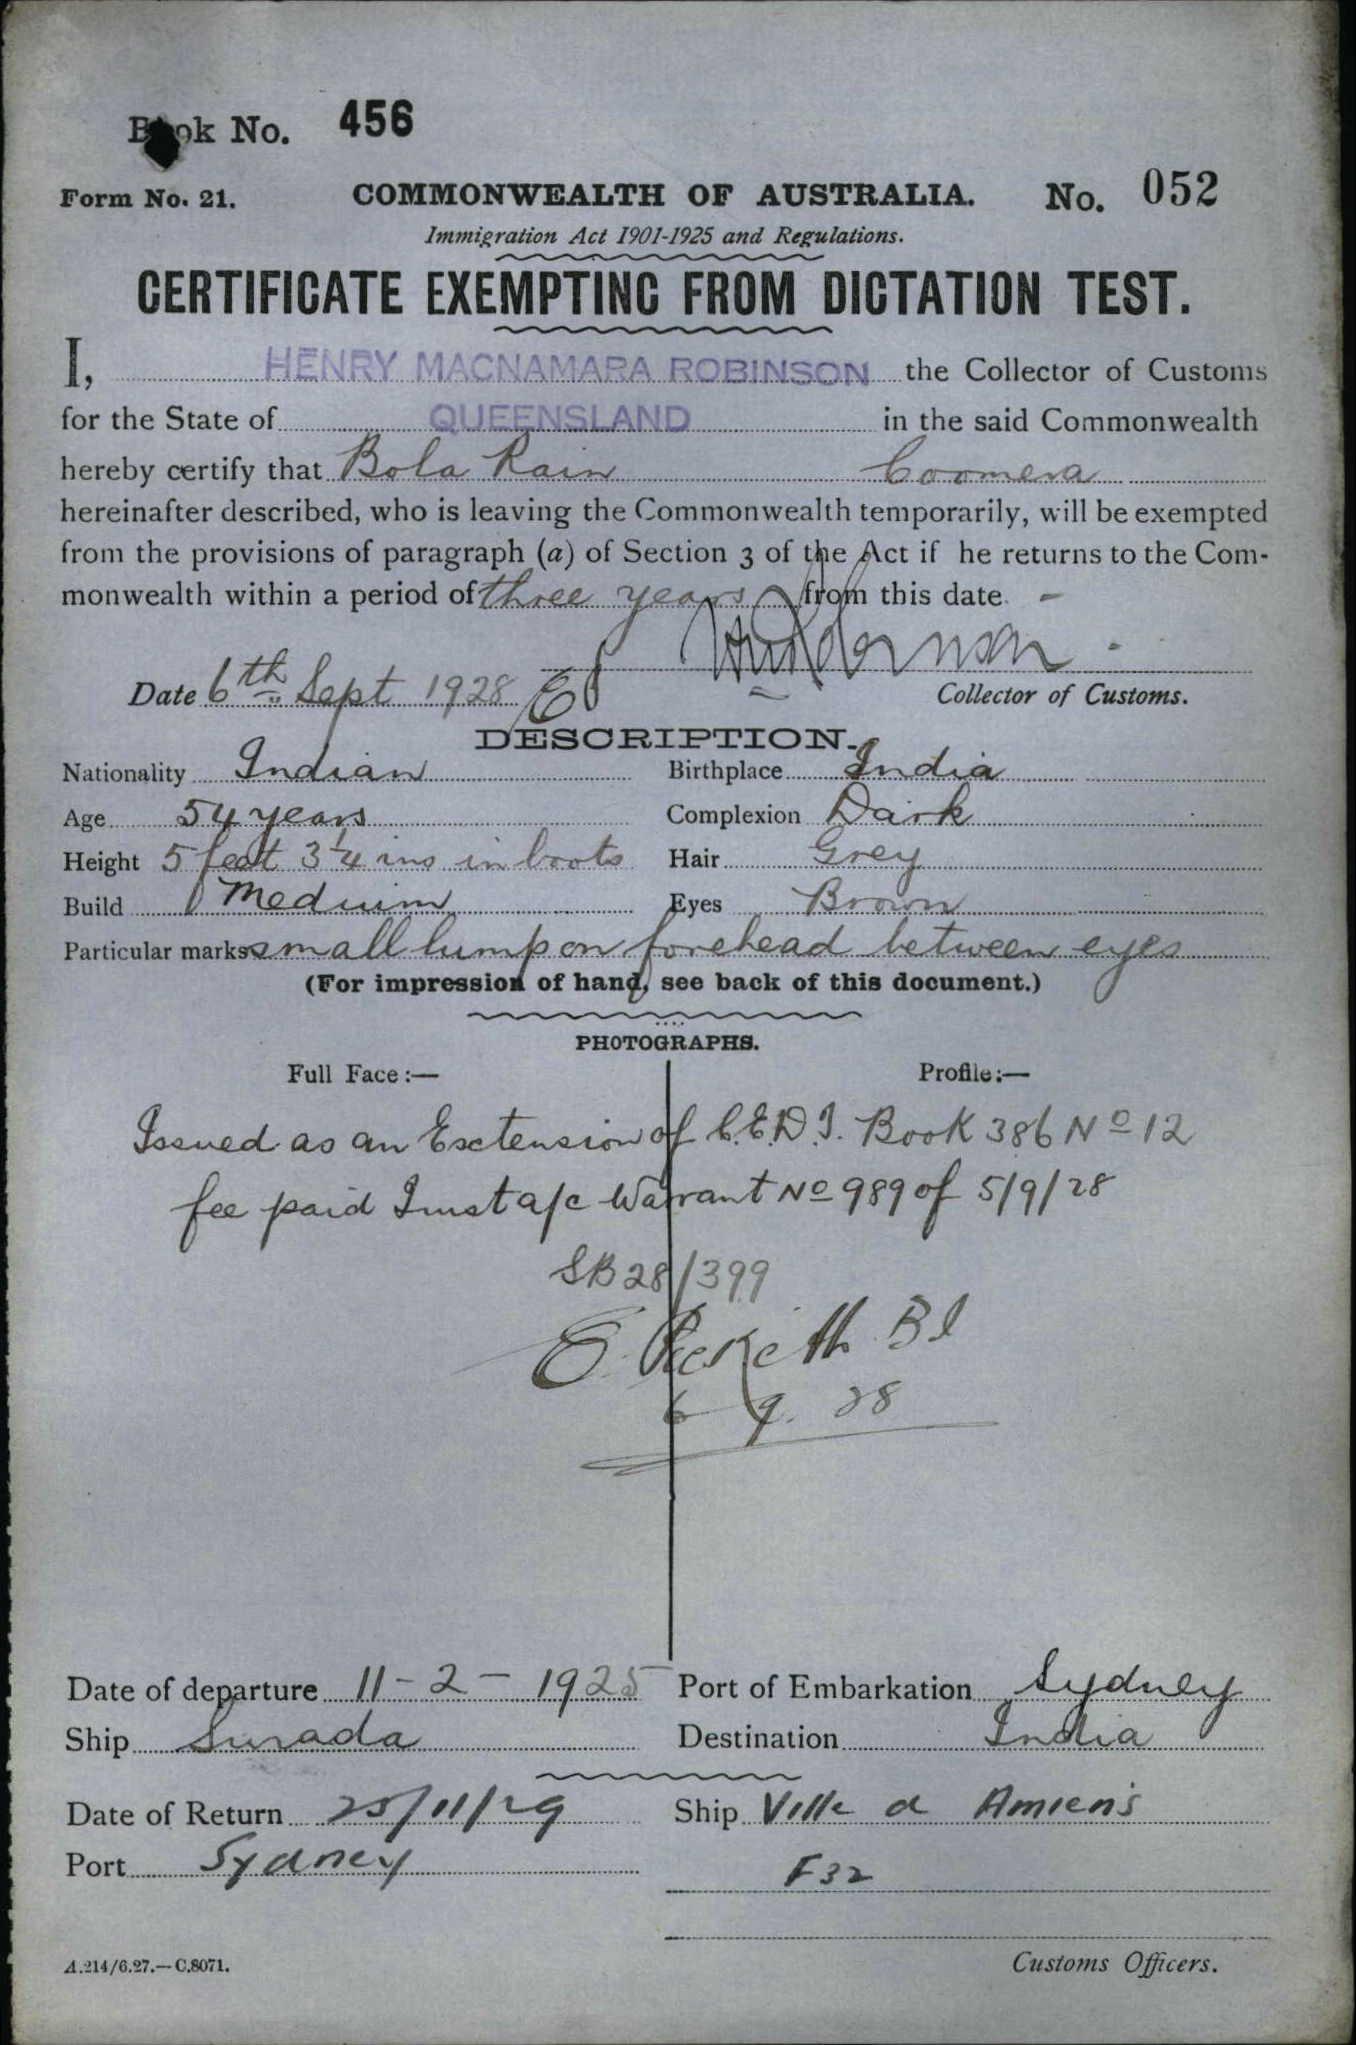 Book No. 456
Form No. 21. COMMONWEALTH OF AUSTRALIA. No. 052
Immigration Act 1901-1925 and Regulations.
CERTIFICATE EXEMPTING FROM DICTATION TEST.
I, HENRY MACNAMARA ROBINSON the Collector of Customs
for the State of QUEENSLAND in the said Commonwealth
hereby certify that Bola Rain Coomera
hereinafter described, who is leaving the Commonwealth temporarily, will be exempted
from the provisions of paragraph (a) of Section 3 of the Act if he returns to the Com-
monwealth within a period of three years from this date
Date 6th Sept 1928 EP
Collector of Customs.
DESCRIPTION.
Nationality Indian Birthplace India
Age 54 years Complexion Dark
Height 5 feet 3 1/4 ins in boots Hair Grey
Build Medium Eyes Brown
Particular marks small lump on forehead between eyes
(For impression of hand, see back of this document.)
PHOTOGRAPHS.
Full Face:— Profile:—
Issued as an Extension of C.E.D.T. Book 386 No 12
fee paid a/c Warrant No 989 of 5/9/28
SB 28/399
E. BI
6 9. 28
Date of departure 11-2-1925 Port of Embarkation Sydney
Ship Surada Destination India
Date of Return 25/11/29 Ship Ville d Amiens
Port Sydney F32
A.214/6.27.—C.8071. Customs Officers.